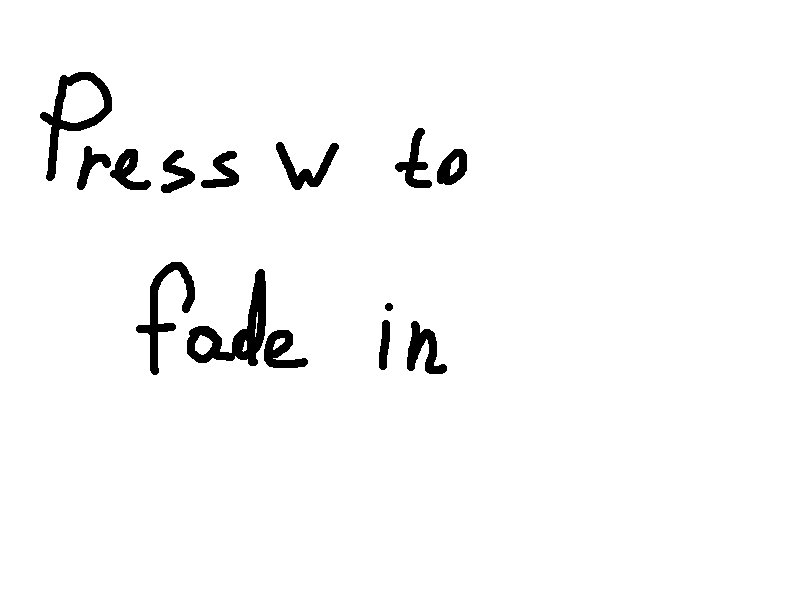 Press w to
fade in